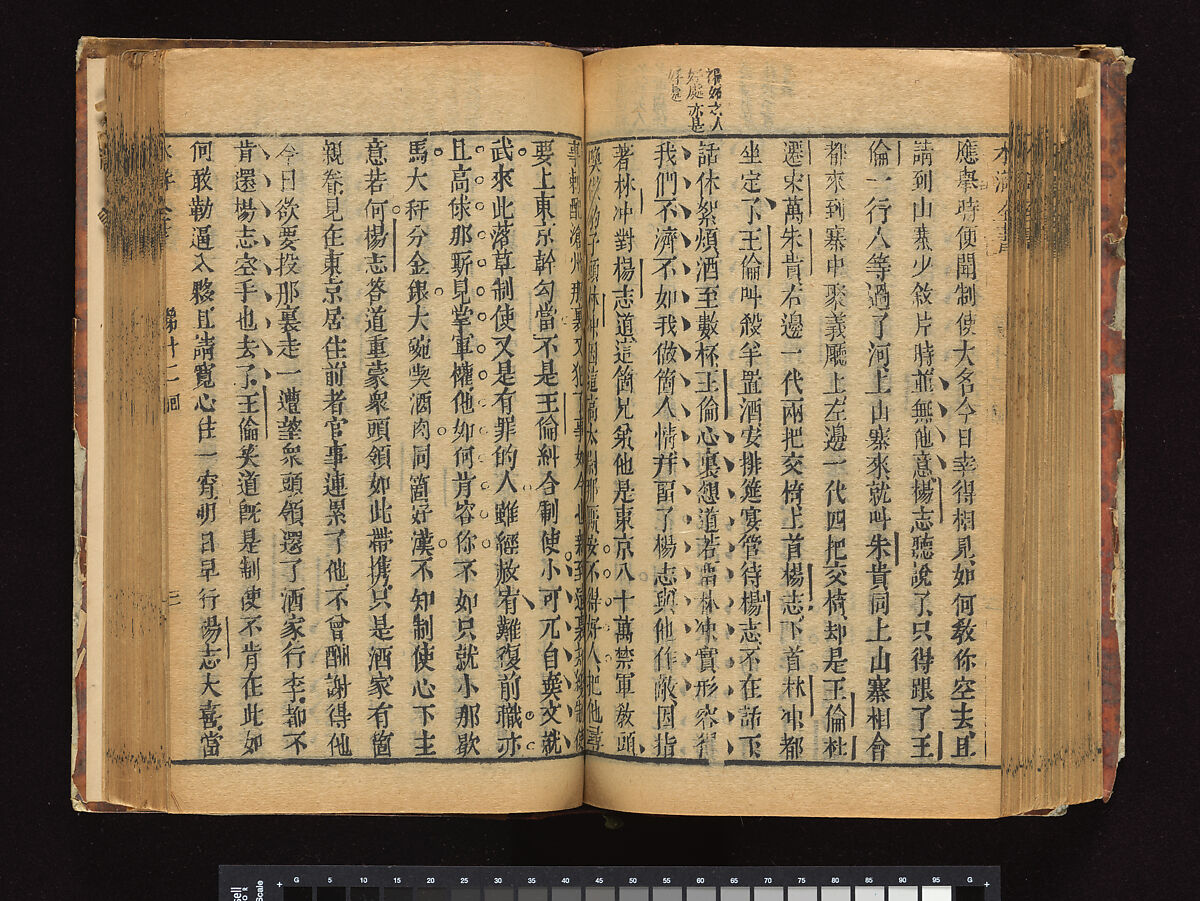 得始之人
好處亦是
好是
應舉時便聞制使大名今日幸得相見如何教你空去且
請到山寨少敘片時並無他意楊志聽說了只得跟了王
倫一行人等過了河上山寨來就叫朱貴同上山寨相會
都來到寨中聚義廳上左邊一代四把交椅却是王倫杜
遷宋萬朱貴右邊一代兩把交椅上首楊志下首林冲都
坐定了王倫叫殺羊置酒安排筵宴管待楊志不在話下
話休絮煩酒至數杯王倫心裏想道若留林冲實形容得
我們不濟不如我做箇人情并留了楊志與他作敵因指
着林冲對楊志道這箇兄弟他是東京八十萬禁軍教頭
喚做豹子頭林冲因這高太尉那厮安不得好人把他尋
事刺配滄州那裏又犯了事如今也新到這裏却纔制使
要上東京幹勾當不是王倫糾合制使小可兀自棄文就
武來此落草制使又是有罪的人雖經赦宥難復前職亦
且高俅那厮見掌軍權他如何肯容你不如只就小那歇
馬大秤分金銀大碗喫酒肉同箇好漢不知制使心下主
意若何楊志答道重蒙衆頭領如此帶携只是酒家有箇
親眷見在東京居住前者官事連累了他不曾酬謝得他
今日欲要投那裏走一遭望衆頭領還了酒家行李都不
肯還楊志空手也去了王倫笑道既是制使不肯在此如
何敢勒逼入夥且請寬心住一宵明日早行楊志大喜當
第十二回
三